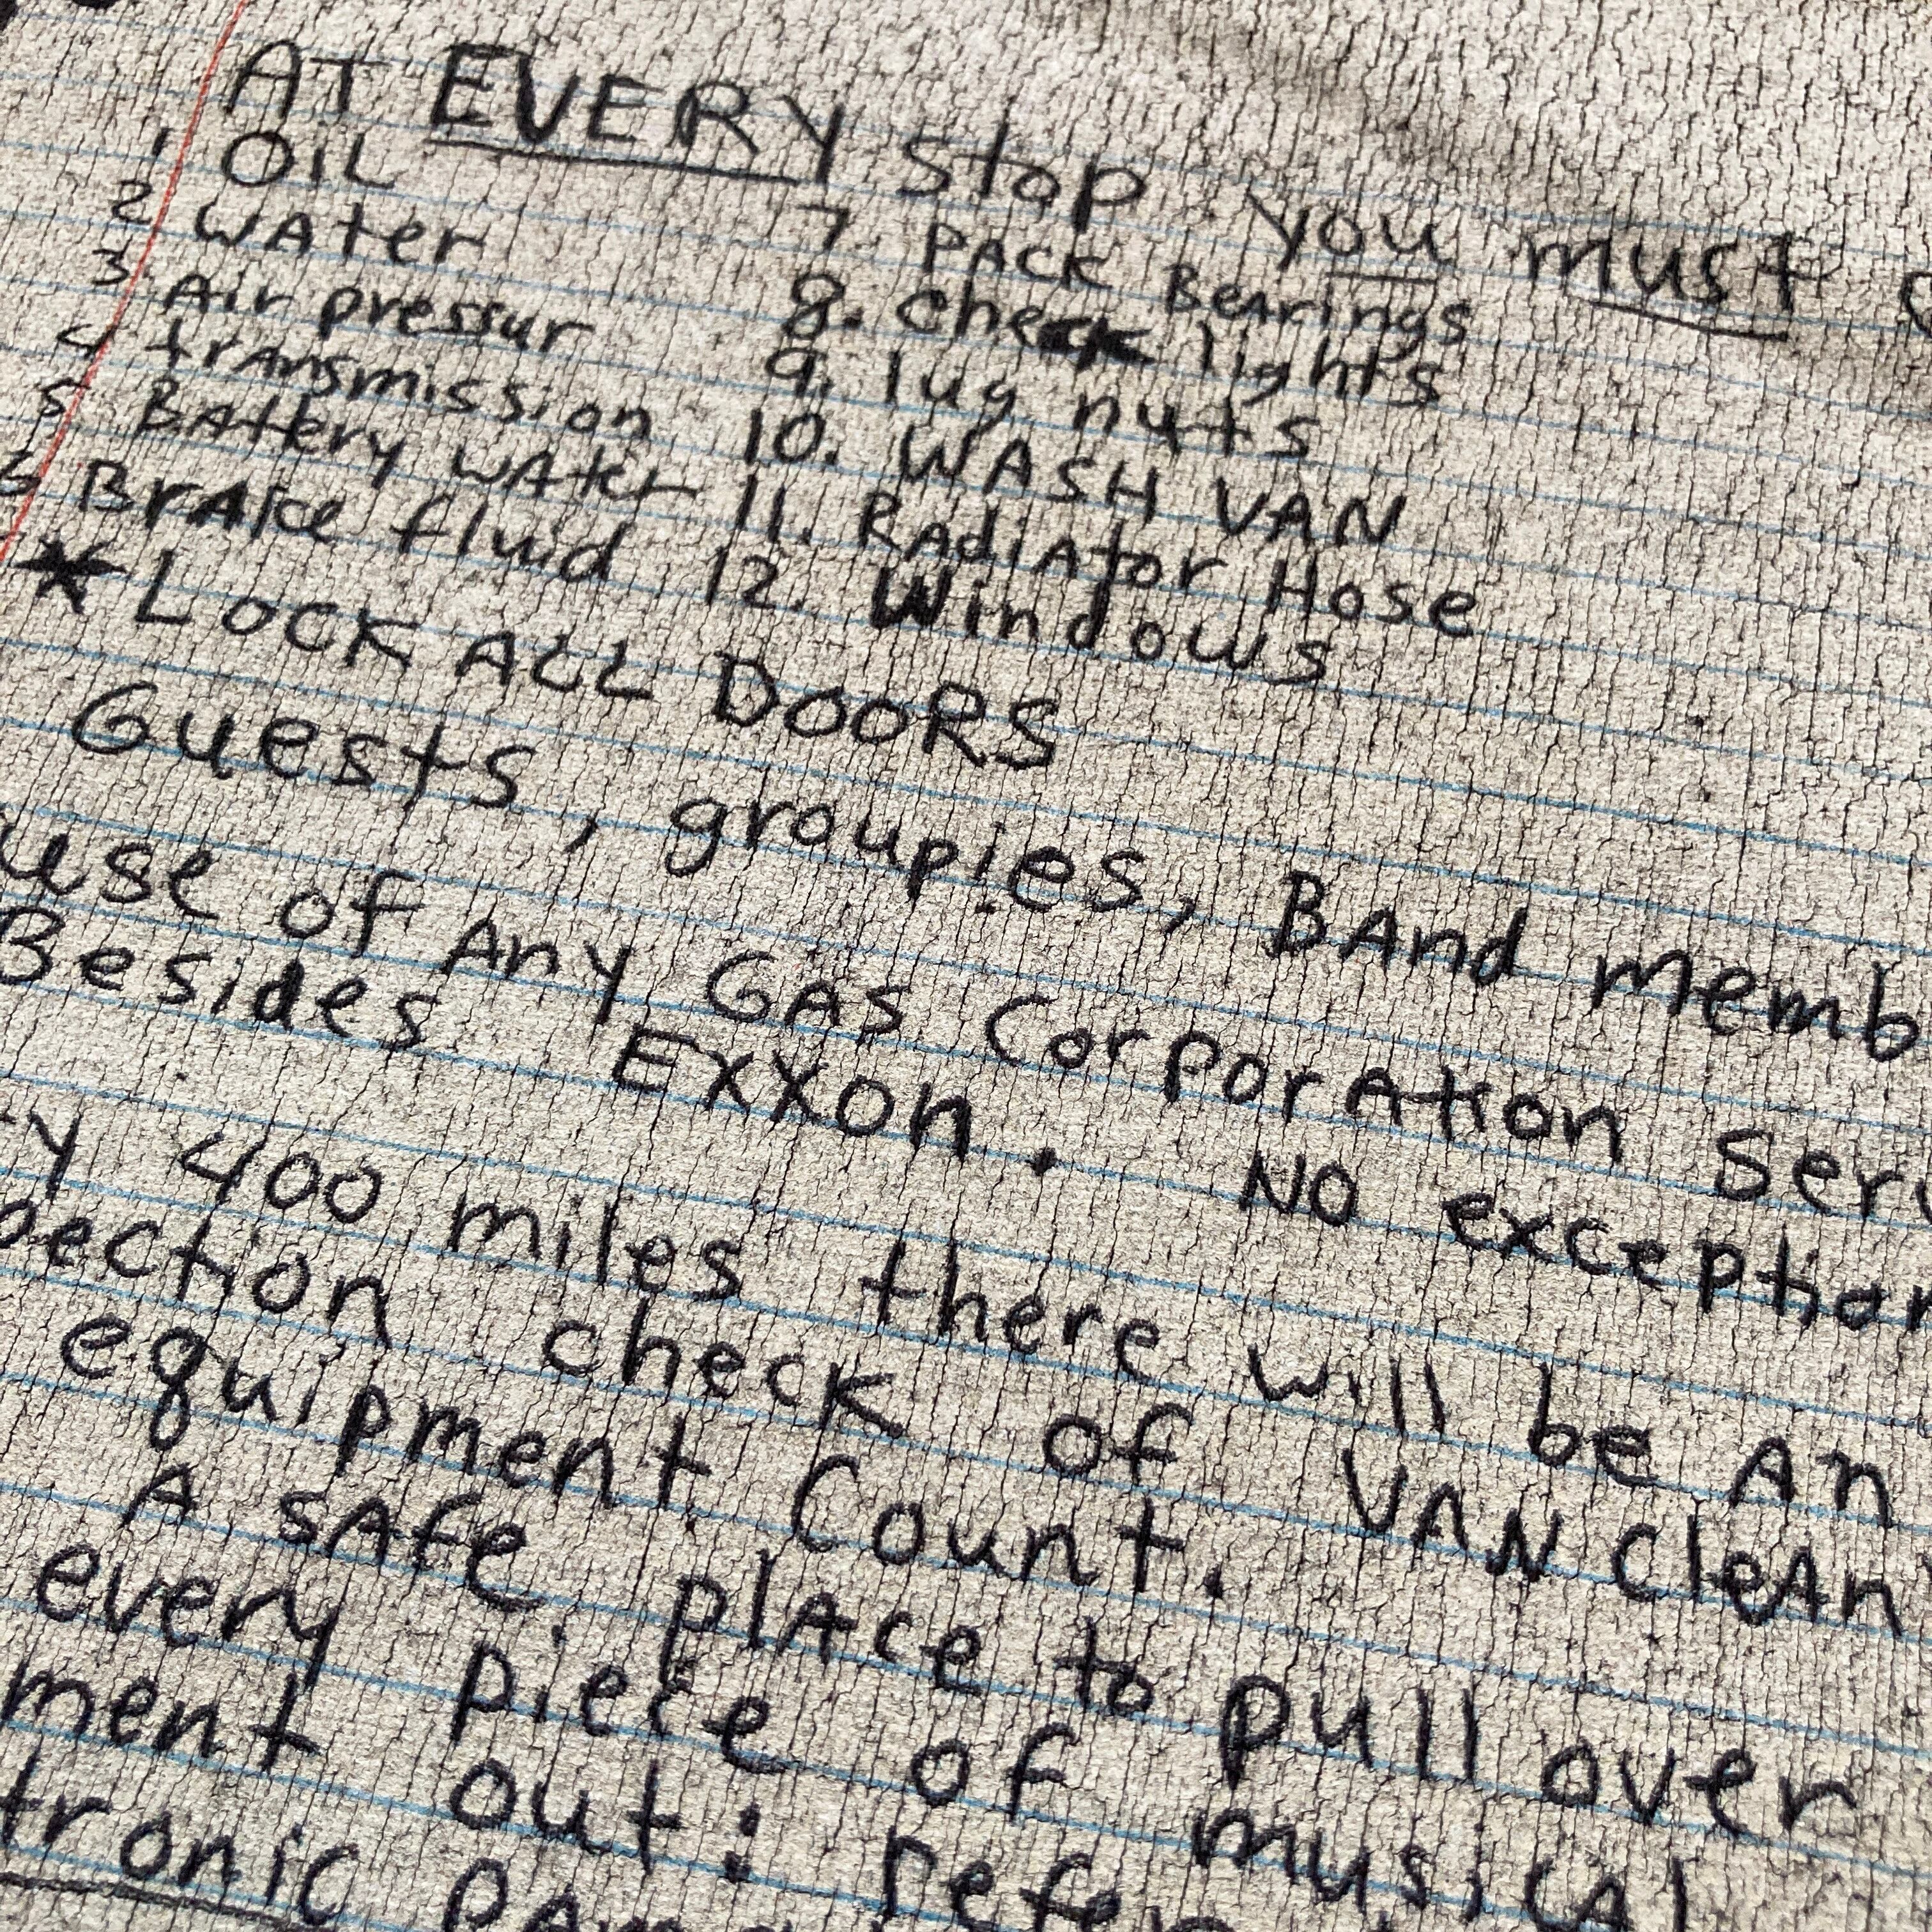 AT EVERY stop you must
1 OIL
2 WAter 7. PACK BeArings
3 Air pressur 8. check lights
4 trAnsmission 9. lug nuts
5 BAttery wAter 10. WASH VAN
6 BrAke fluid 11. RAdiAtor Hose
12. Windows
* LOCK ALL DOORS
Guests, groupies, BAnd memb
use of Any GAS CorporAtion Serv
Besides Exxon. NO exception
y 400 miles there will be An
pection check of VAN cleAn
equipment Count.
A sAfe plAce to pull over
every piece of musicAl
ment out: refe
tronic